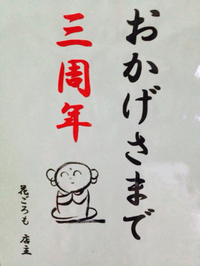 おかげさまで
三周年
花ごろも 店主